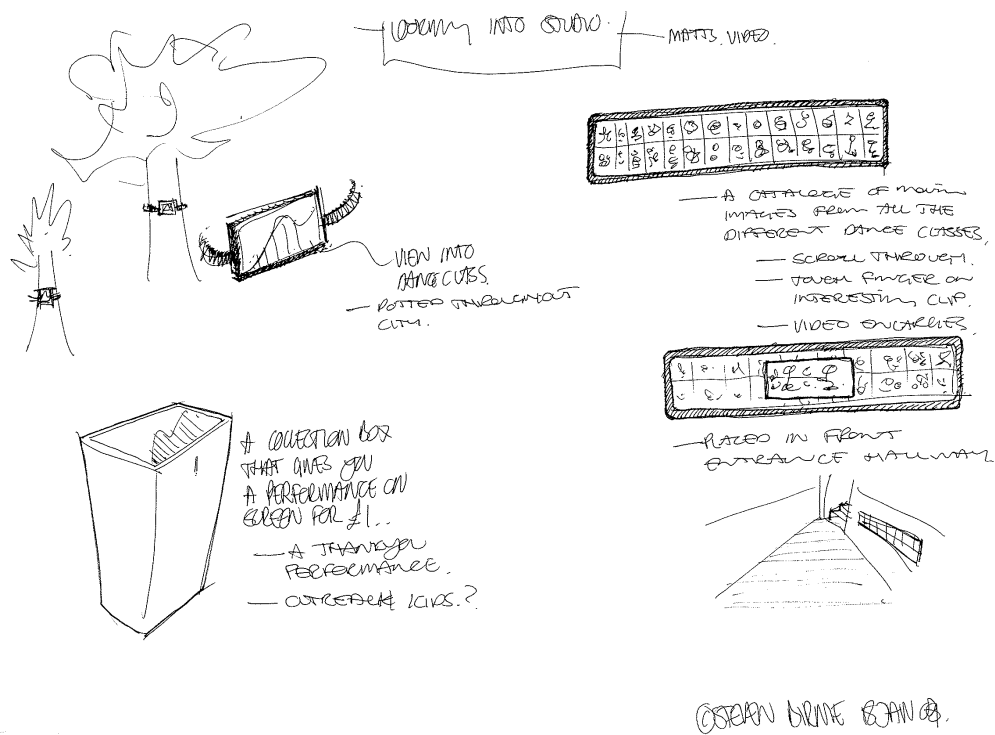 LOOKING INTO STUDIO.
MATTS VIDEO.
VIEW INTO
DANCE CLASS.
— DOTTED THROUGHOUT
CITY.
— A CATALOGUE OF MOVING
IMAGES FROM ALL THE
DIFFERENT DANCE CLASSES,
— SCROLL THROUGH.
— TOUCH FINGER ON
INTERESTING CLIP.
— VIDEO ENLARGES.
— PLACED IN FRONT
ENTRANCE HALLWAY
A COLLECTION BOX
THAT GIVES YOU
A PERFORMANCE ON
SCREEN FOR £1..
— A THANKYOU
PERFORMANCE.
— OUTREACH KIDS.?
©